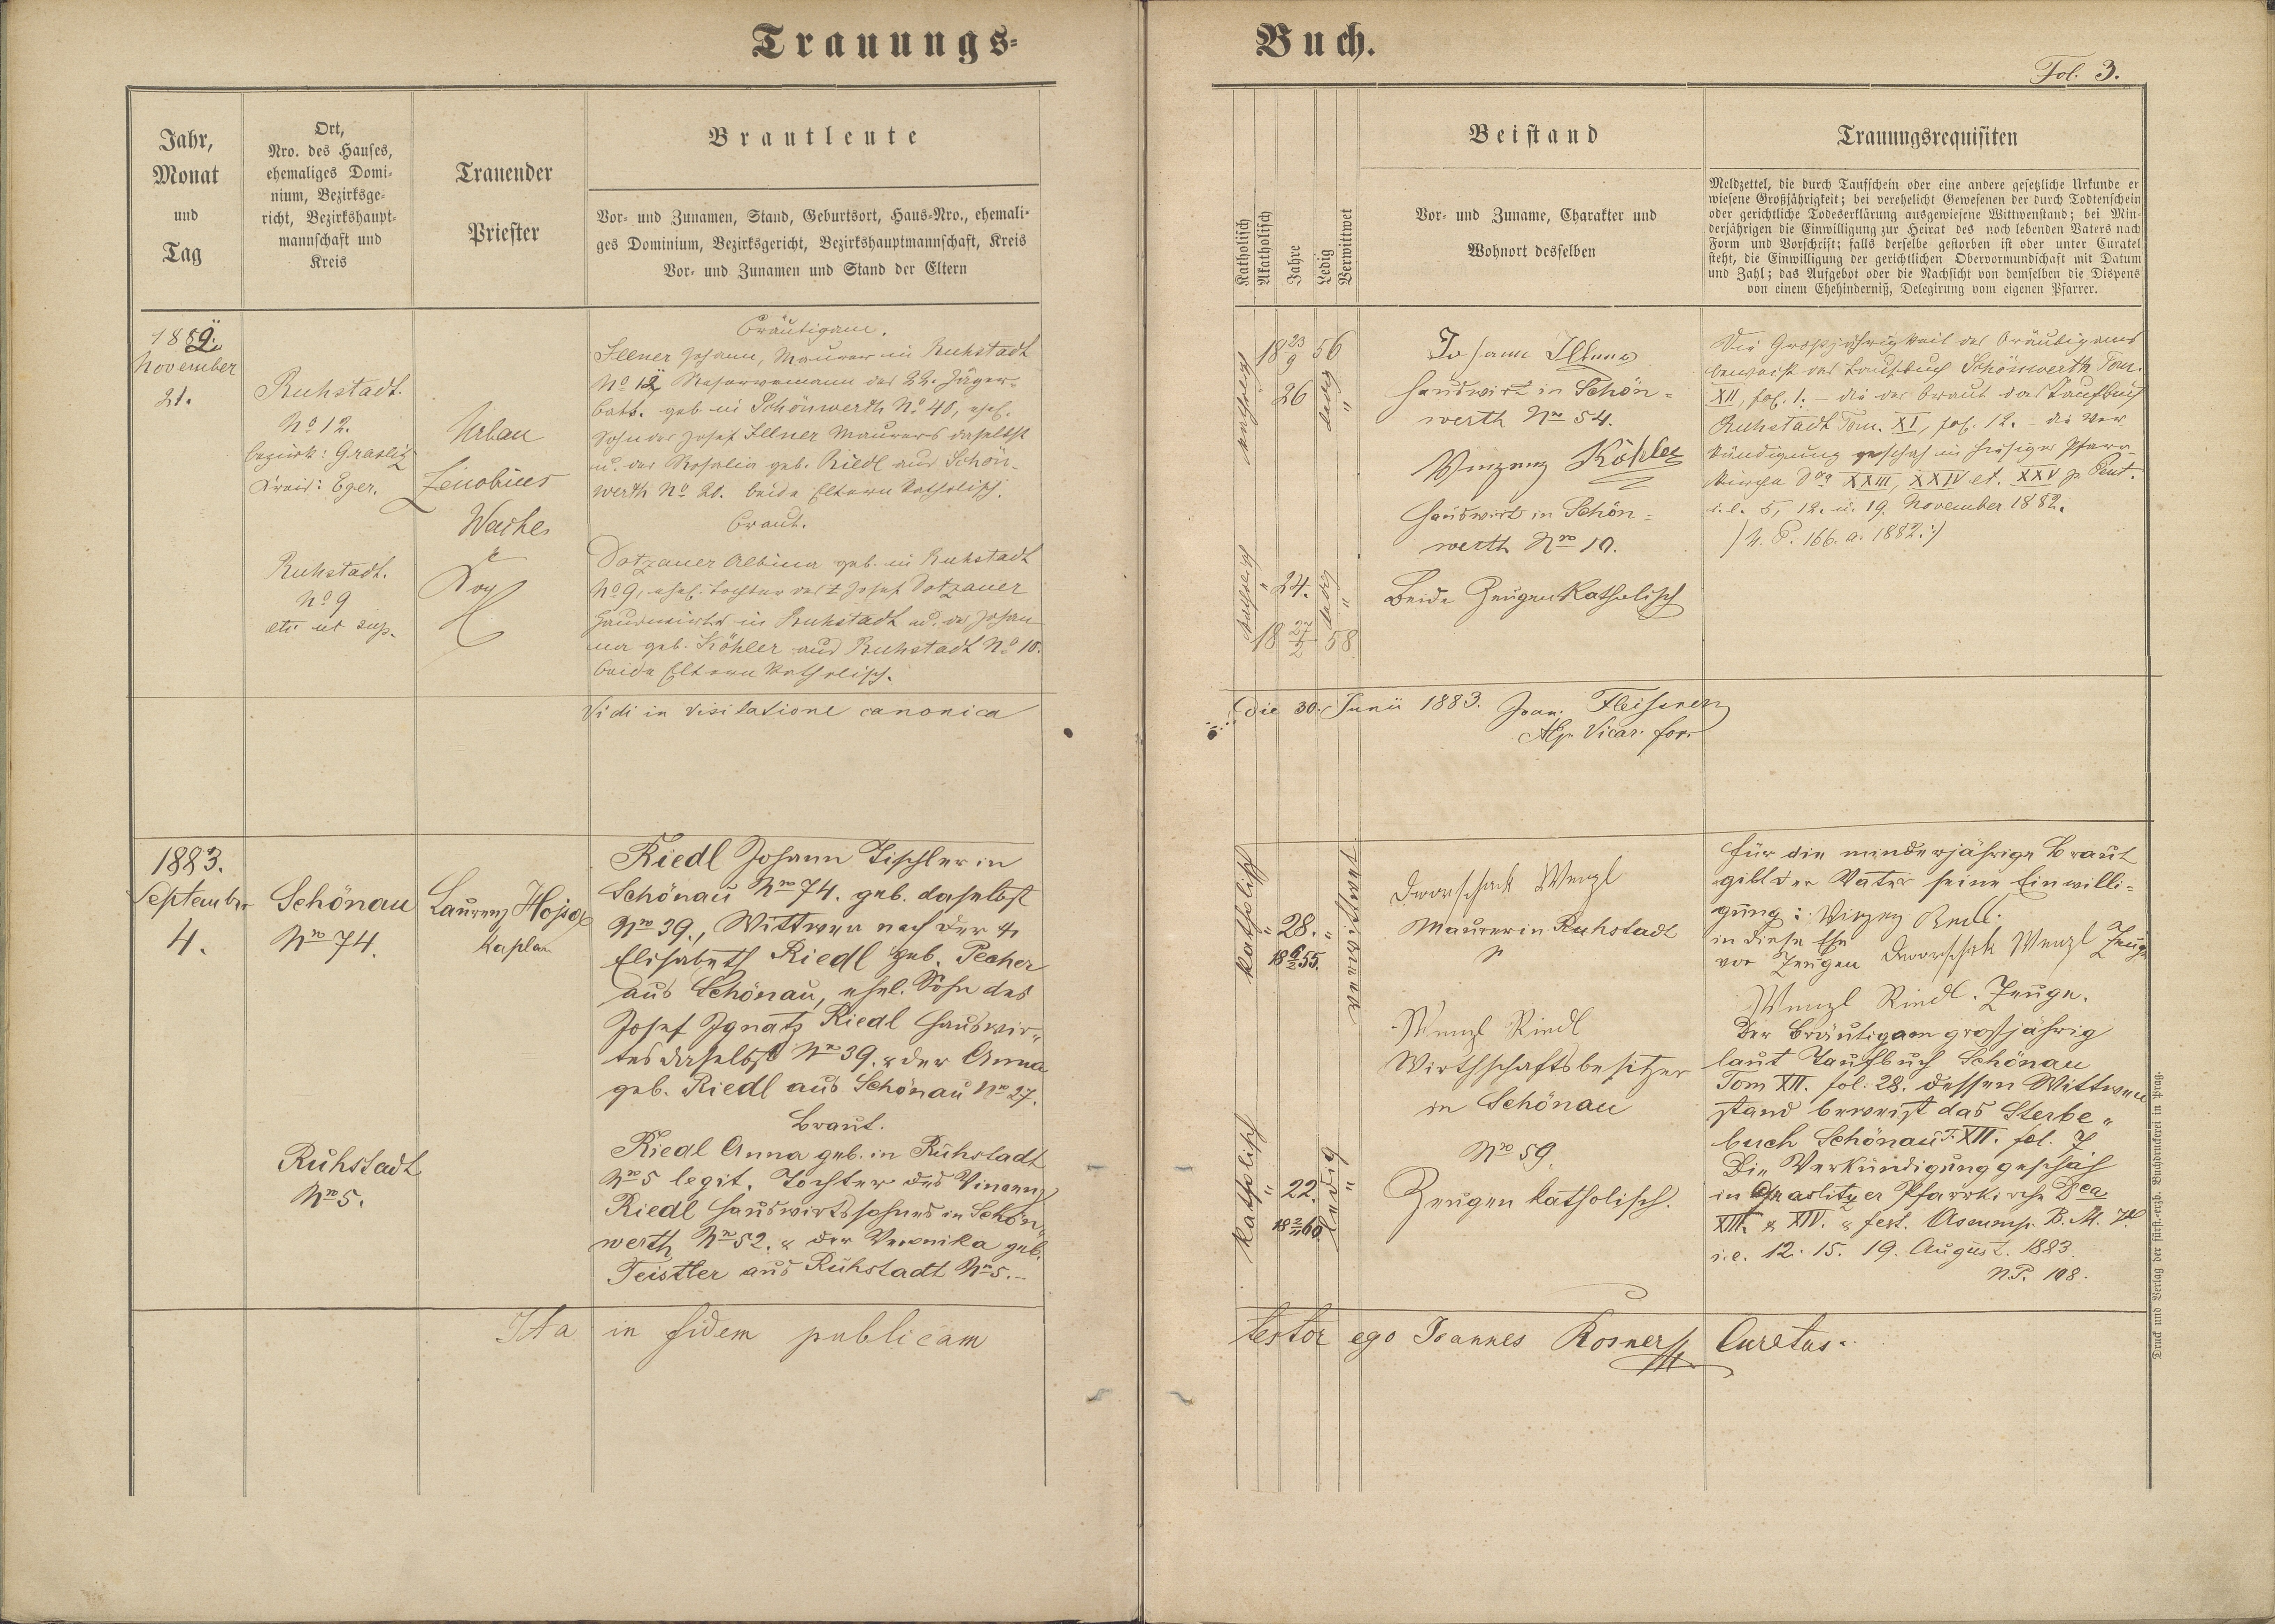 Trauungs-
Buch.
Fol. 3.
Jahr,
Monat
und
Tag
Ort,
Nro. des Hauses,
ehemaliges Domi-
nium, Bezirksge-
richt, Bezirkshaupt-
mannschaft und
Kreis
Trauender
Priester
Brautleute
Vor- und Zunamen, Stand, Geburtsort, Haus-Nro., ehemali-
ges Dominium, Bezirksgericht, Bezirkshauptmannschaft, Kreis
Vor- und Zunamen und Stand der Eltern
Katholisch
Akatholisch
Jahre
Ledig
Verwittwet
Beistand
Vor- und Zuname, Charakter und
Wohnort desselben
Trauungsrequisiten
Meldzettel, die durch Taufschein oder eine andere gesetzliche Urkunde er
wiesene Großjährigkeit; bei verehelicht Gewesenen der durch Todtenschein
oder gerichtliche Todeserklärung ausgewiesene Wittwenstand; bei Min-
derjährigen die Einwilligung zur Heirat des noch lebenden Vaters nach
Form und Vorschrift; falls derselbe gestorben ist oder unter Curatel
steht, die Einwilligung der gerichtlichen Obervormundschaft mit Datum
und Zahl; das Aufgebot oder die Nachsicht von demselben die Dispens
von einem Ehehinderniß, Delegirung vom eigenen Pfarrer.
1882.
November
21.
Ruhstadt.
No 12.
Bezirk: Graslitz
Kreis: Eger.
Ruhstadt.
No 9
etc ut sup.
Urban
Zenobius
Bräutigam.
Illner Johann, Maurer in Ruhstadt
No 12 Reservemann des 22. Jäger-
batt. geb. in Schönwerth No 40, ehel.
Sohn des Josef Illner Maurers daselbst
u. der Rosalia geb. Riedl aus Schön-
werth No 20. beide Eltern katholisch.
Braut.
Dotzauer Albina geb. in Ruhstadt
No 9, ehel. Tochter des † Josef Dotzauer
Hauswirts in Ruhstadt u. der Johan
na geb. Köhler aus Ruhstadt No 10.
beide Eltern katholisch.
katholisch
18 23/9 56
26
ledig
"
katholisch
"
24.
ledig
"
18 27/2 58
Johann Illner
Hauswirt in Schön-
werth Nro 54.
Vinzenz Köhler
Hauswirt in Schön-
werth Nro 10.
Beide Zeugen Katholisch
Die Großjährigkeit des Bräutigams
beweist das Taufbuch Schönwerth Tom.
XII, fol. 1. – die der Braut das Taufbuch
Ruhstadt Tom. XI, fol. 12. – die Ver
kündigung geschah in hiesiger Pfarr-
kirche Dca XXIII, XXIV et. XXV p. Pent.
i. e. 5, 12. u. 19. November 1882.
/N. P. 166. a. 1882:/
Vidi in visitatione canonica
die 30. Junii 1883. Joan. Fleissner
Vicar. for.
1883.
September
4.
Schönau
Nro 74.
Ruhstadt
Nro 5.
Laurenz
Kaplan
Riedl Johann Tischler in
Schönau Nro 74. geb. daselbst
Nro 39., Wittwer nach der †
Elisabeth Riedl geb. Pecher
aus Schönau, ehel. Sohn des
Josef Ignatz Riedl Hauswir-
tes daselbst Nro 39. & der Anna
geb. Riedl aus Schönau Nro 27.
Braut.
Riedl Anna geb. in Ruhstadt
Nro 5 legit. Tochter des Vincenz
Riedl Hauswirtssohnes in Schön-
werth Nro 52. & der Veronika geb.
Teistler aus Ruhstadt Nro 5.–
katholisch
"
28.
"
verwittwet
18 6/2 55.
katholisch
"
22.
"
ledig
18 60
Dworschack Wenzl
Maurer in Ruhstadt
Wenzl Riedl
Wirthschaftsbesitzer
in Schönau
Nro 59.
Zeugen katholisch.
Für die minderjährige Braut
gibt der Vater seine Einwilli-
gung: Vinzenz Riedl.
in diese Ehe
vor Zeugen Dworschak Wenzl Zeuge
Wenzl Riedl. Zeuge.
Der Bräutigam großjährig
laut Taufbuch Schönau
Tom XII. fol. 28. dessen Wittwer
stand beweist das Sterbe-
buch Schönau T. XII. fol. 7
Die Verkündigung geschah
in Graslitzer Pfarrkirche Dca
XIII. & XIV. & fest. Assump. B. M. V.
i. e. 12. 15. 19. August. 1883.
N.P. 108.
Ita in fidem publicam
testor ego Joannes Rosner Curatus.
Druck und Verlag der fürst.-erzb. Buchdruckerei in Prag.